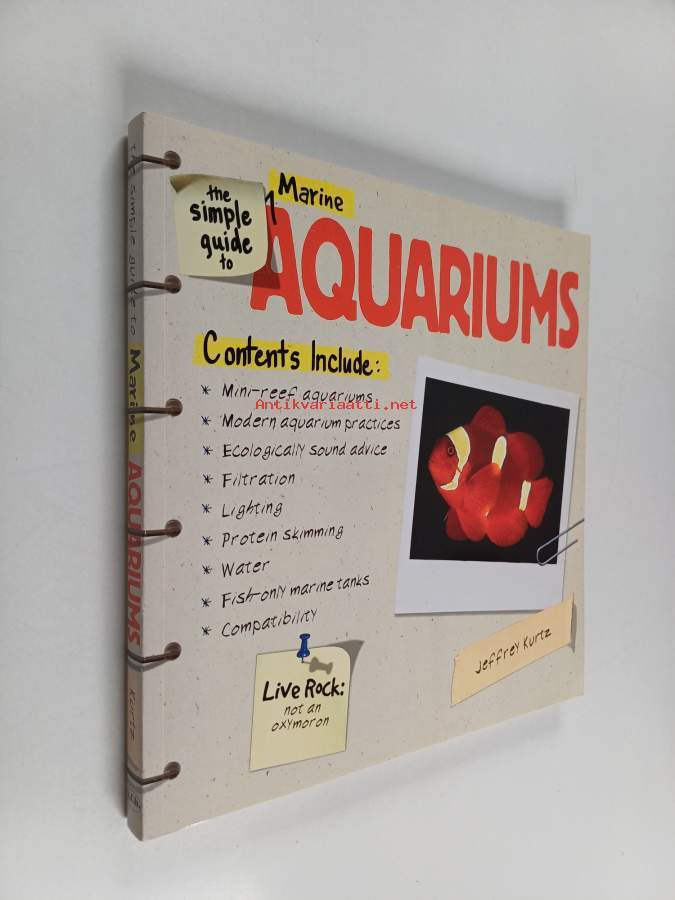 the
simple
guide
to
Marine
AQUARIUMS
Contents Include:
* Mini-reef aquariums
Antikvariaatti.net
* Modern aquarium practices
* Ecologically sound advice
* Filtration
* Lighting
* Protein skimming
* Water
* Fish-only marine tanks
* Compatibility
Live Rock:
not an
oxymoron
Jeffrey Kurtz
the simple guide to Marine AQUARIUMS Kurtz